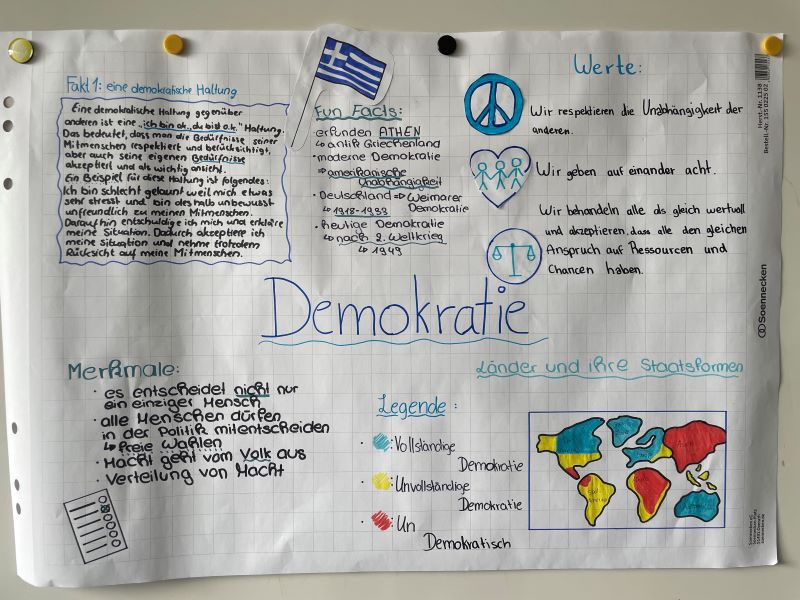 Fakt 1: eine demokratische Haltung
Eine demokratische Haltung gegenüber
anderen ist eine „ich bin o.k., du bist o.k." Haltung.
Das bedeutet, dass man die Bedürfnisse seiner
Mitmenschen respektiert und berücksichtigt,
aber auch seine eigenen Bedürfnisse
akzeptiert und als wichtig ansieht.
Ein Beispiel für diese Haltung ist folgendes:
Ich bin schlecht gelaunt weil mich etwas
sehr stresst und bin deshalb unbewusst
unfreundlich zu meinen Mitmenschen.
Daraufhin entschuldige ich mich und erkläre
meine Situation. Dadurch akzeptiere ich
meine Situation und nehme trotzdem
Rücksicht auf meine Mitmenschen.
Fun Facts:
erfunden ATHEN
↳ antik Griechenland
· moderne Demokratie
⇒ amerikanische
Unabhängigkeit
· Deutschland ⇒ Weimarer
Demokratie
↳ 1918-1933
· heutige Demokratie
↳ nach 2. Weltkrieg
↳ 1949
Werte:
Wir respektieren die Unabhängigkeit der
anderen.
Wir geben auf einander acht.
Wir behandeln alle als gleich wertvoll
und akzeptieren, dass alle den gleichen
Anspruch auf Ressourcen und
Chancen haben.
Demokratie
Merkmale:
· es entscheidet nicht nur
ein einziger Mensch
· alle Menschen dürfen
in der Politik mitentscheiden
↳ freie Wahlen
· Macht geht vom Volk aus
· Verteilung von Macht
Länder und ihre Staatsformen
Legende:
· Vollständige
Demokratie
· Unvollständige
Demokratie
· Un
Demokratisch
Soennecken
Herst.-Nr. 1138
Bestell.-Nr. 155 0225 02